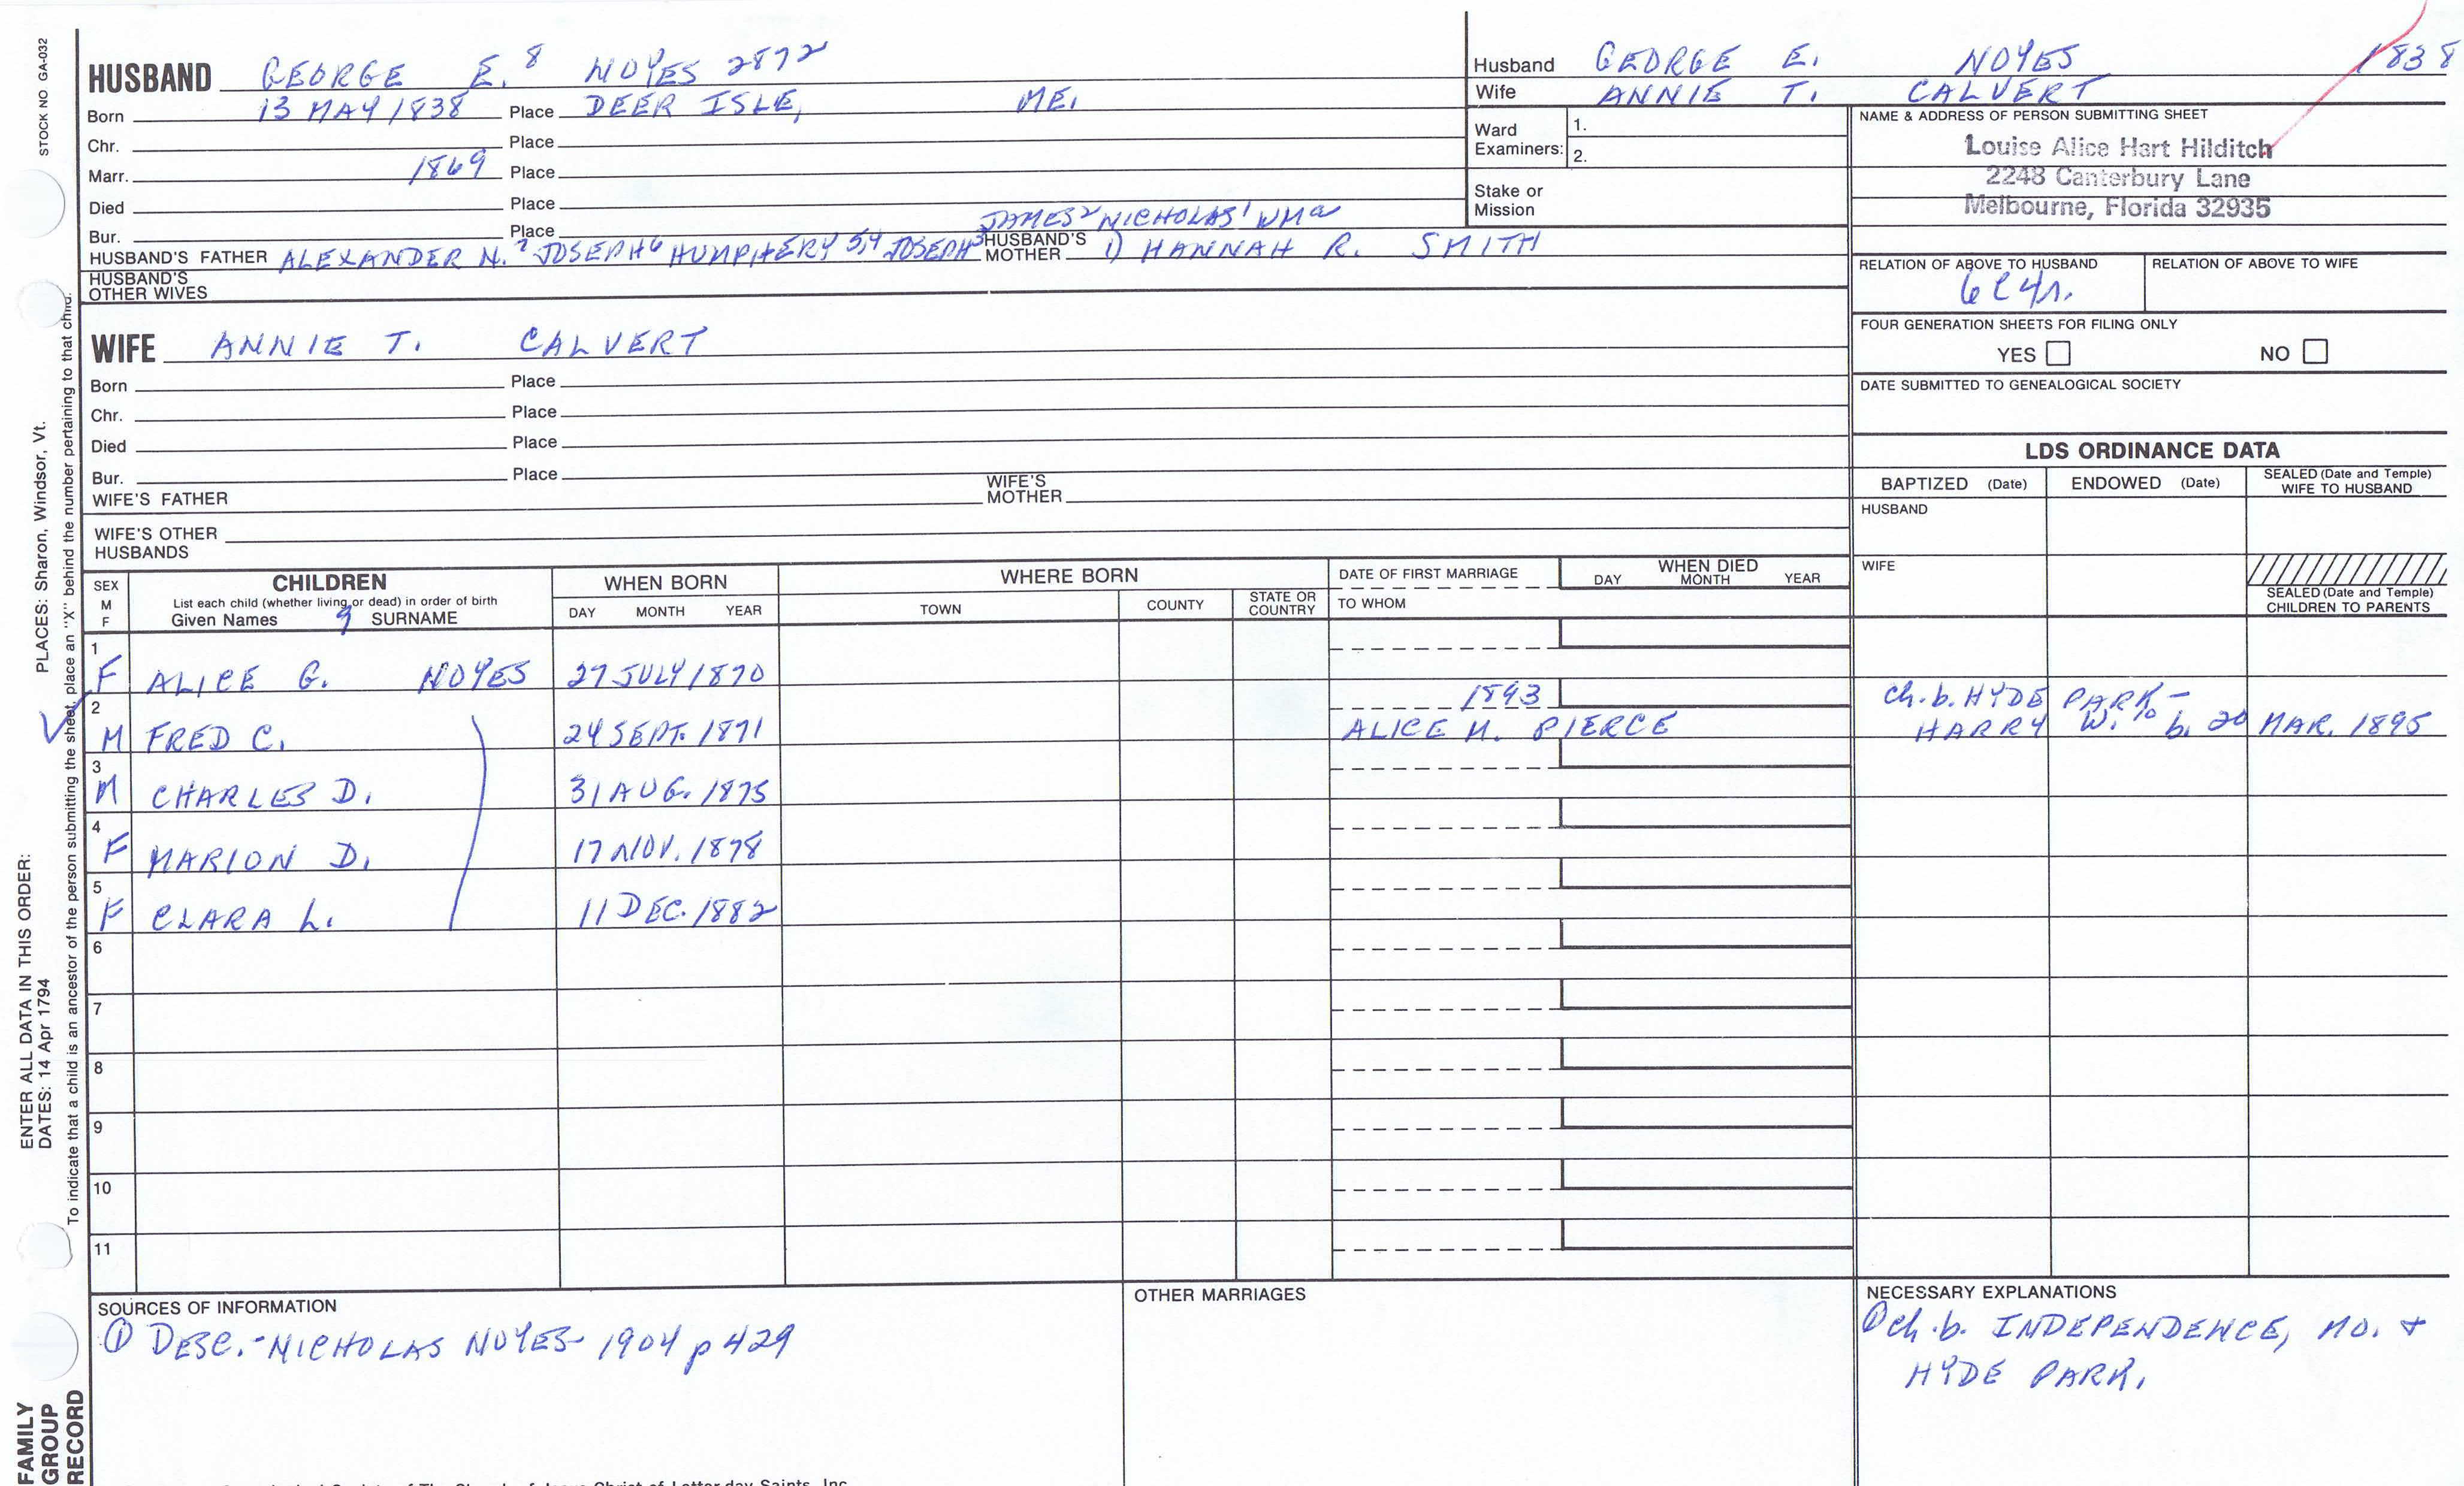 STOCK NO GA-032
HUSBAND GEORGE E.⁸ NOYES 2872
Born 13 MAY 1838 Place DEER ISLE, ME.
Chr. Place
Marr. 1869 Place
Died Place
Bur. Place
JAMES² NICHOLAS¹ WMᵃ
HUSBAND'S FATHER ALEXANDER N.⁷ JOSEPH⁶ HUMPHERY 5,4 JOSEPH³ HUSBAND'S MOTHER 1) HANNAH R. SMITH
HUSBAND'S OTHER WIVES
WIFE ANNIE T. CALVERT
Born Place
Chr. Place
Died Place
Bur. Place
WIFE'S FATHER WIFE'S MOTHER
WIFE'S OTHER HUSBANDS
Husband GEORGE E. NOYES 1838
Wife ANNIE T. CALVERT
Ward Examiners: 1.
2.
Stake or Mission
NAME & ADDRESS OF PERSON SUBMITTING SHEET
Louise Alice Hart Hilditch
2248 Canterbury Lane
Melbourne, Florida 32935
RELATION OF ABOVE TO HUSBAND RELATION OF ABOVE TO WIFE
6C4r.
FOUR GENERATION SHEETS FOR FILING ONLY
YES NO
DATE SUBMITTED TO GENEALOGICAL SOCIETY
LDS ORDINANCE DATA
BAPTIZED (Date) ENDOWED (Date) SEALED (Date and Temple) WIFE TO HUSBAND
HUSBAND
WIFE
SEALED (Date and Temple) CHILDREN TO PARENTS
SEX M F
CHILDREN
List each child (whether living or dead) in order of birth
Given Names 9 SURNAME
WHEN BORN
DAY MONTH YEAR
WHERE BORN
TOWN COUNTY STATE OR COUNTRY
DATE OF FIRST MARRIAGE
TO WHOM
WHEN DIED
DAY MONTH YEAR
1
F ALICE G. NOYES 27 JULY 1870
2 1893 Ch. b. HYDE PARK-
M FRED C. 24 SEPT. 1871 ALICE M. PIERCE HARRY W. 10 b. 20 MAR. 1895
3
M CHARLES D. 31 AUG. 1875
4
F MARION D. 17 NOV. 1878
5
F CLARA L. 11 DEC. 1882
6
7
8
9
10
11
SOURCES OF INFORMATION
① DESC.-NICHOLAS NOYES- 1904 p 429
OTHER MARRIAGES
NECESSARY EXPLANATIONS
① Ch. b. INDEPENDENCE, MO. &
HYDE PARK.
ENTER ALL DATA IN THIS ORDER:
DATES: 14 Apr 1794
PLACES: Sharon, Windsor, Vt.
To indicate that a child is an ancestor of the person submitting the sheet, place an "X" behind the number pertaining to that child.
FAMILY GROUP RECORD
Society of The Church of Jesus Christ of Latter-day Saints, Inc.